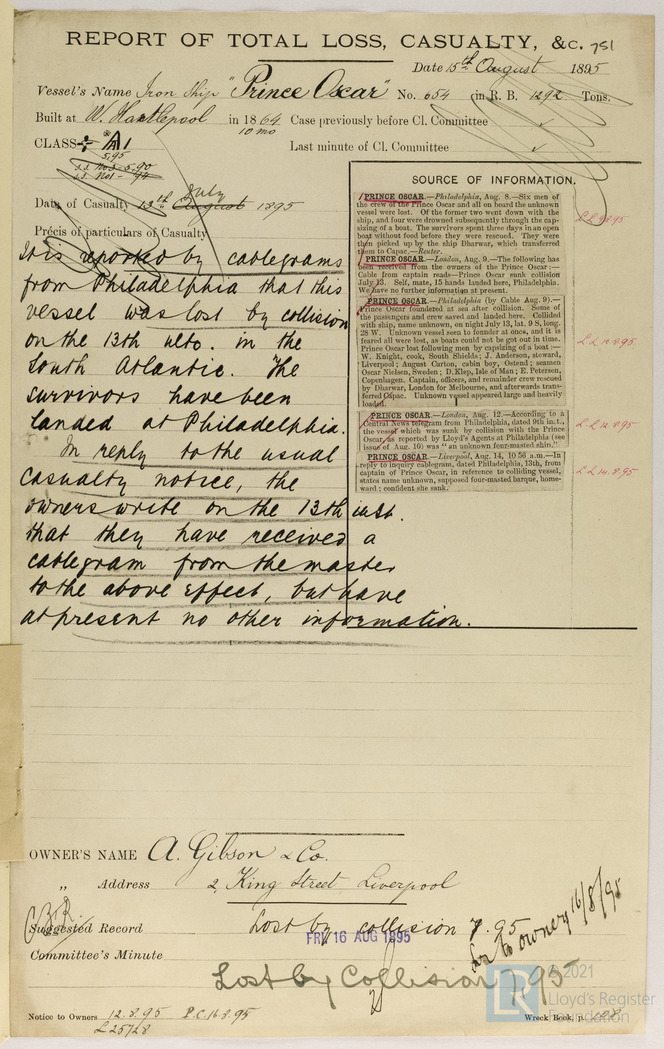 REPORT OF TOTAL LOSS, CASUALTY, &c. 751
Date 15th August 1895
Vessel's Name Iron Ship "Prince Oscar" No. 654 in R. B. 1292 Tons.
Built at W. Hartlepool in 1864 Case previously before Cl. Committee ✓
10 mo
CLASS ÷ *A1 Last minute of Cl. Committee ✓
5,95
SOURCE OF INFORMATION.
July
Date of Casualty 13th August 1895
Précis of particulars of Casualty
It is reported by cablegrams
from Philadelphia that this
vessel was lost by collision
on the 13th ulto. in the
South Atlantic. The
survivors have been
landed at Philadelphia.
In reply to the usual
casualty notice, the
owners write on the 13th inst.
that they have received a
cablegram from the master
to the above effect, but have
at present no other information.
PRINCE OSCAR.—Philadelphia, Aug. 8.—Six men of
the crew of the Prince Oscar and all on board the unknown
vessel were lost. Of the former two went down with the
ship, and four were drowned subsequently through the cap-
sizing of a boat. The survivors spent three days in an open
boat without food before they were rescued. They were
then picked up by the ship Dharwar, which transferred
them to Capac.—Reuter.
PRINCE OSCAR.—London, Aug. 9.—The following has
been received from the owners of the Prince Oscar:—
Cable from captain reads—Prince Oscar sunk collision
July 13. Self, mate, 15 hands landed here, Philadelphia.
We have no further information at present.
PRINCE OSCAR.—Philadelphia (by Cable Aug. 9).—
Prince Oscar foundered at sea after collision. Some of
the passengers and crew saved and landed here. Collided
with ship, name unknown, on night July 13, lat. 9 S, long.
28 W. Unknown vessel seen to founder at once, and it is
feared all were lost, as boats could not be got out in time.
Prince Oscar lost following men by capsizing of a boat:—
W. Knight, cook, South Shields; J. Anderson, steward,
Liverpool; August Carton, cabin boy, Ostend; seamen
Oscar Nielsen, Sweden; D. Klep, Isle of Man; E. Peterson,
Copenhagen. Captain, officers, and remainder crew rescued
by Dharwar, London for Melbourne, and afterwards trans-
ferred Capac. Unknown vessel appeared large and heavily
loaded.
L L 10.8.95
PRINCE OSCAR.—London, Aug. 12.—According to a
Central News telegram from Philadelphia, dated 9th inst.,
the vessel which was sunk by collision with the Prince
Oscar, as reported by Lloyd's Agents at Philadelphia (see
issue of Aug. 10) was "an unknown four-masted ship."
L L 12.8.95
PRINCE OSCAR.—Liverpool, Aug. 14, 10 56 a.m.—In
reply to inquiry cablegram, dated Philadelphia, 13th, from
captain of Prince Oscar, in reference to colliding vessel,
states name unknown, supposed four-masted barque, home-
ward; confident she sank.
L L 14.8.95
OWNER'S NAME A. Gibson & Co.
„ Address 2, King Street Liverpool
Suggested Record Lost by collision 7.95
FRI 16 AUG 1895
to owners 16/8/95
Committee's Minute
Lost by Collision 7.95
Notice to Owners 12.8.95 P.C. 16.8.95
Wreck Book, p. 108
© 2021
LR
Lloyd's Register
Foundation